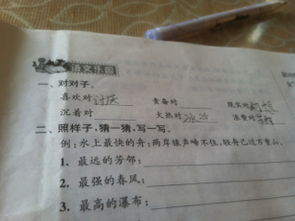 语文乐园
一、对对子。
喜欢对讨厌 责备对 现实对
沉着对 大热对冰冷 浪费对
二、照样子,猜一猜,写一写。
例:水上最快的舟:两岸猿声啼不住,轻舟已过万重山。
1. 最远的芳邻:
2. 最强的春风:
3. 最高的瀑布: